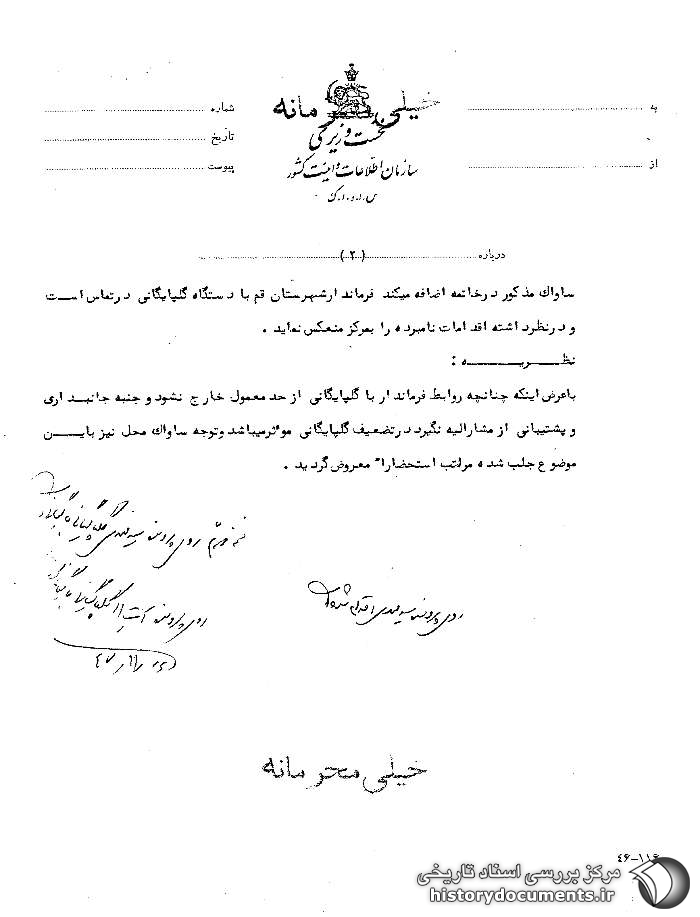 خیلی محرمانه
به
شماره
نخست وزیری
تاریخ
از
سازمان اطلاعات و امنیت کشور
پیوست
س.ا.و.ا.ک
درباره (۲)
ساواک مذکور درخاتمه اضافه میکند فرماندارشهرستان قم با دستگاه گلپایگانی درتماس است
و درنظرداشته اقدامات نامبرده را بمرکز منعکس نماید .
نظریه :
باعرض اینکه چنانچه روابط فرماندار با گلپایگانی از حد معمول خارج نشود و جنبه جانبداری
و پشتیبانی از مشارالیه نگیرد درتضعیف گلپایگانی موثرمیباشد وتوجه ساواک محل نیز باین
موضوع جلب شده مراتب استحضارا" معروض گردید .
روی پرونده
روی پرونده
روی پرونده
خیلی محرمانه
۴۶-۱۱۶
مرکز بررسی اسناد تاریخی
historydocuments.ir